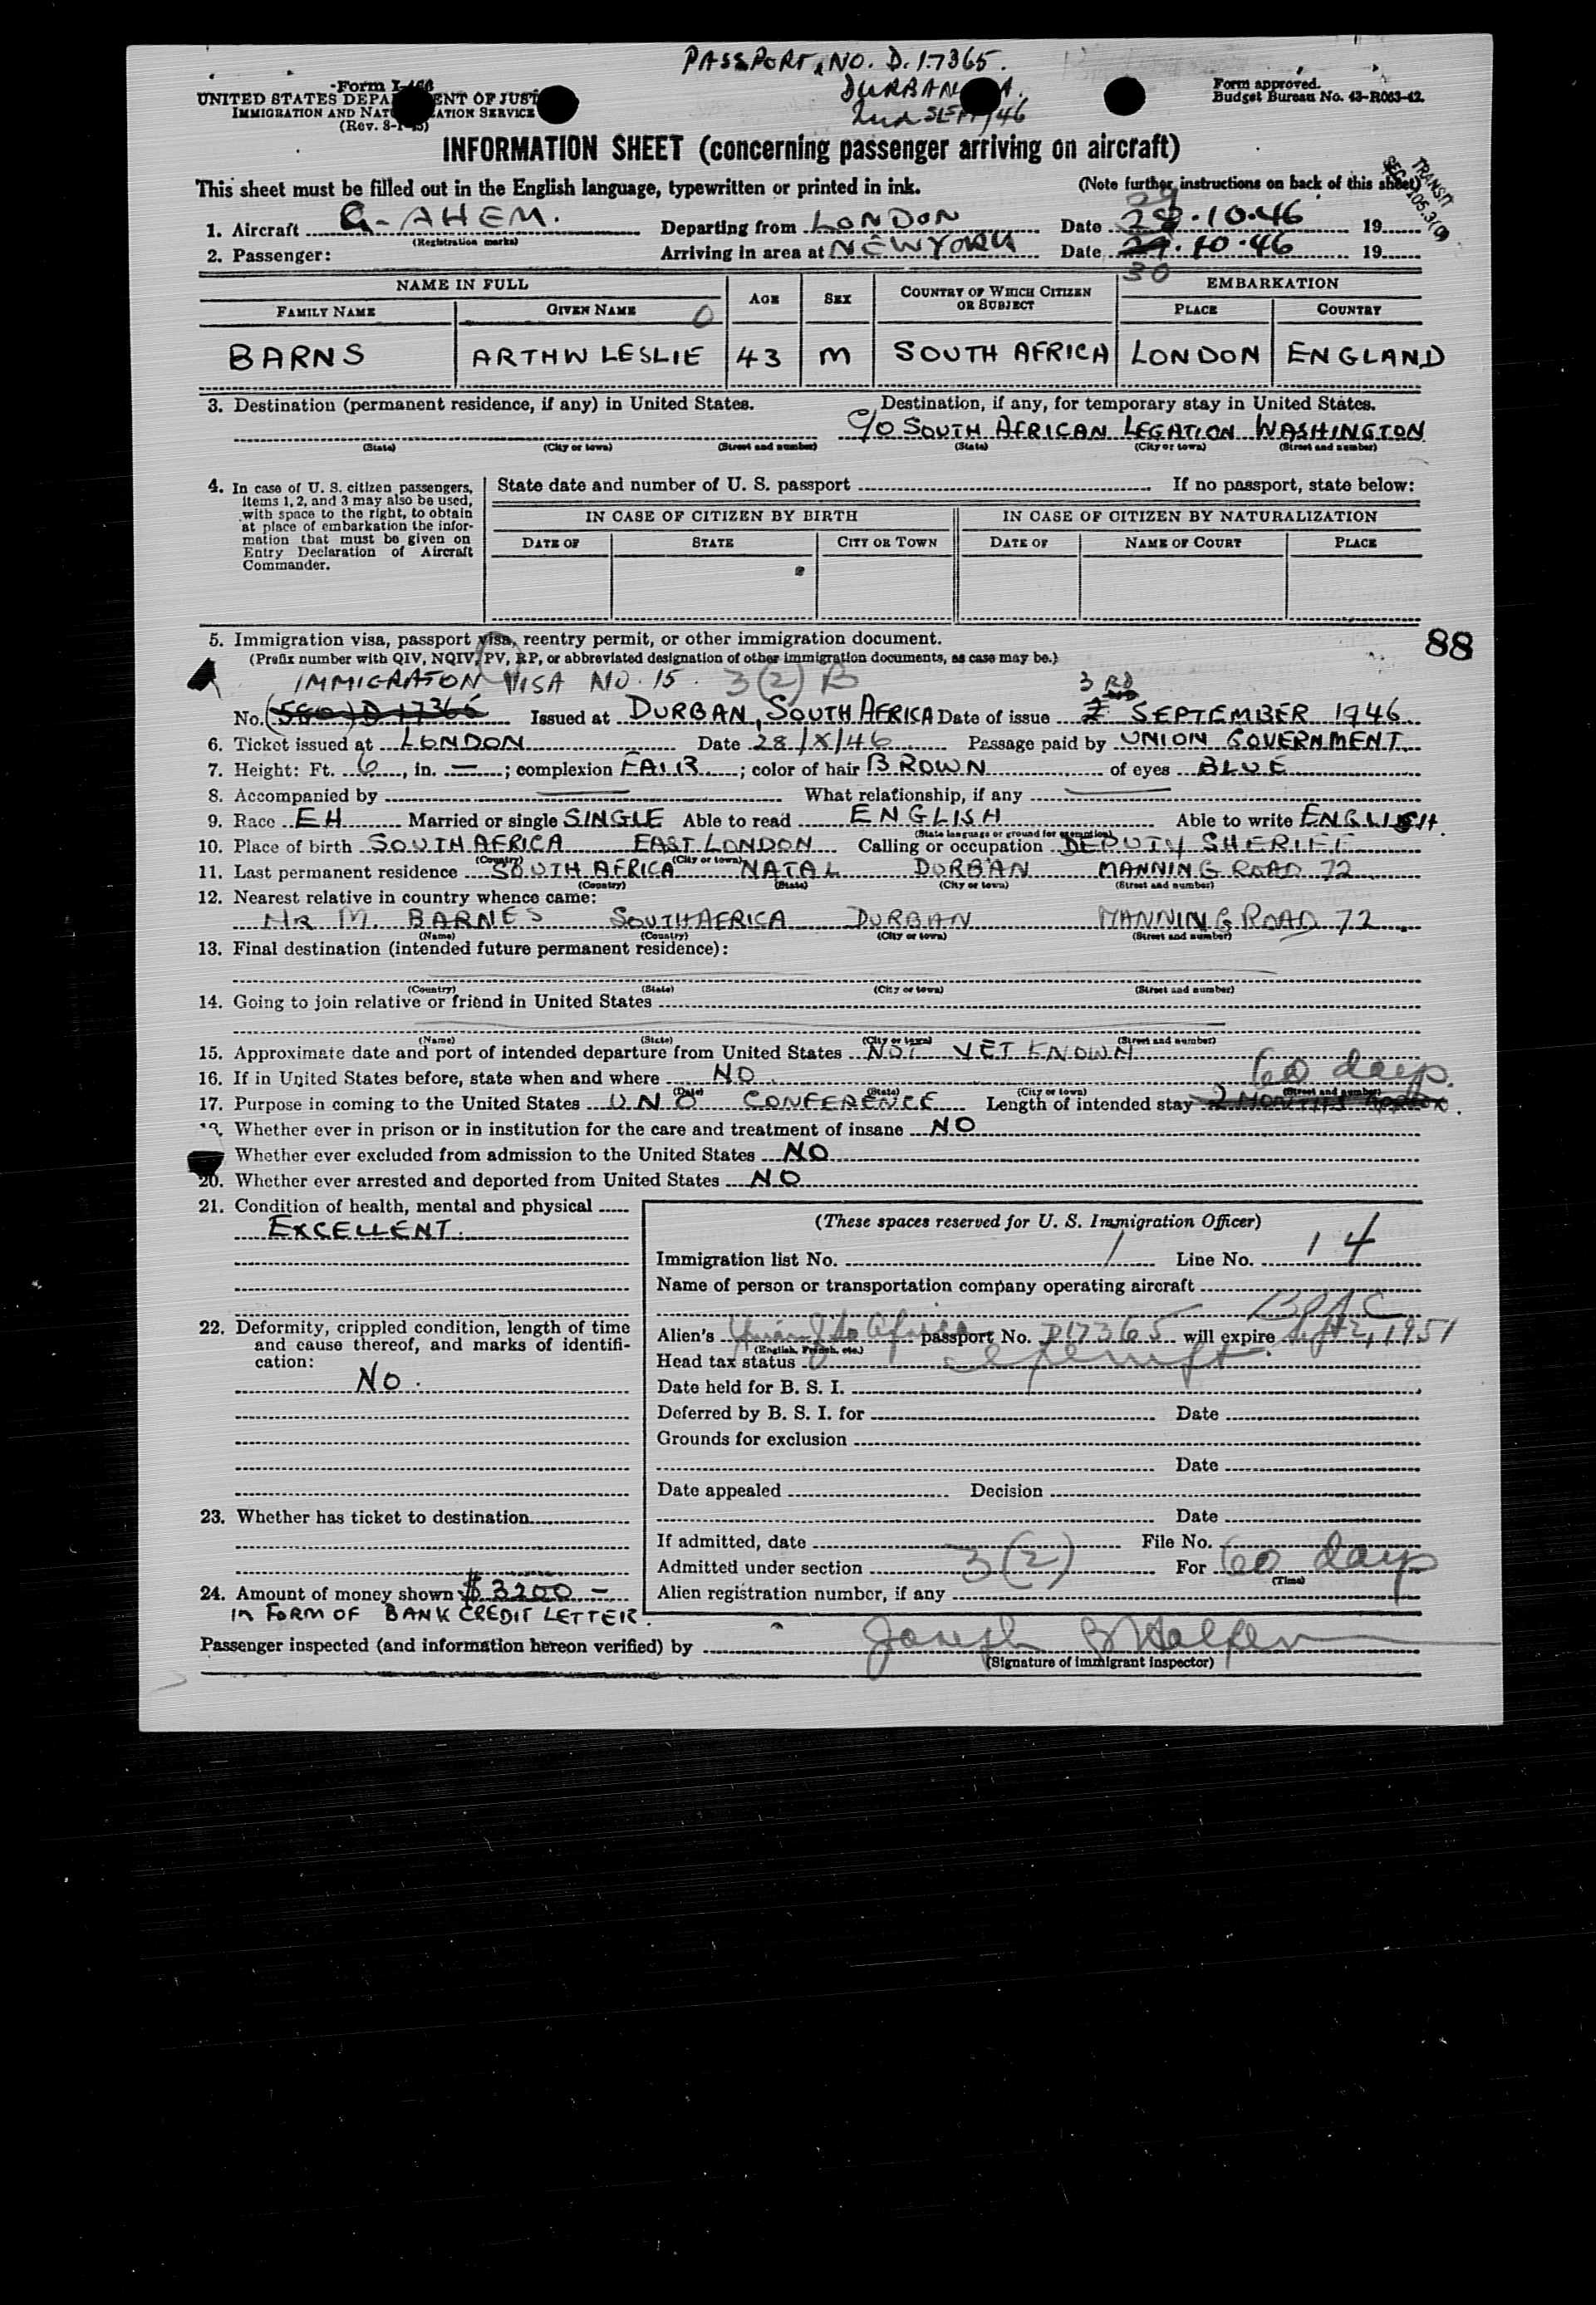 PASSPORT, NO. D. 17365.
DURBAN
2nd SEPT/46
Form
UNITED STATES DEPA ENT OF JUST
IMMIGRATION AND NAT ATION SERVICE
(Rev. 8-1- )
Form approved.
Budget Bureau No. 43-R063-42.
INFORMATION SHEET (concerning passenger arriving on aircraft)
This sheet must be filled out in the English language, typewritten or printed in ink.
(Note further instructions on back of this sheet)
TRANSIT
SEC. 105.3(19
29
1. Aircraft G-AHEM. Departing from LONDON Date 28.10.46 19
(Registration marks)
2. Passenger: Arriving in area at NEW YORK Date 29.10.46 19
30
NAME IN FULL AGE SEX COUNTRY OF WHICH CITIZEN OR SUBJECT EMBARKATION
FAMILY NAME GIVEN NAME PLACE COUNTRY
0
BARNS ARTHW LESLIE 43 M SOUTH AFRICA LONDON ENGLAND
3. Destination (permanent residence, if any) in United States. Destination, if any, for temporary stay in United States.
C/O SOUTH AFRICAN LEGATION WASHINGTON
(State) (City or town) (Street and number) (State) (City or town) (Street and number)
4. In case of U. S. citizen passengers,
items 1, 2, and 3 may also be used,
with space to the right, to obtain
at place of embarkation the infor-
mation that must be given on
Entry Declaration of Aircraft
Commander.
State date and number of U. S. passport If no passport, state below:
IN CASE OF CITIZEN BY BIRTH IN CASE OF CITIZEN BY NATURALIZATION
DATE OF STATE CITY OR TOWN DATE OF NAME OF COURT PLACE
88
5. Immigration visa, passport visa, reentry permit, or other immigration document.
(Prefix number with QIV, NQIV, PV, RP, or abbreviated designation of other immigration documents, as case may be.)
IMMIGRATON VISA NO. 15. 3(2) B 3 RD
No. (560) D 17365 Issued at DURBAN, SOUTH AFRICA Date of issue 2 SEPTEMBER 1946
6. Ticket issued at LONDON Date 28/X/46 Passage paid by UNION GOVERNMENT
7. Height: Ft. 6, in. —; complexion FAIR; color of hair BROWN of eyes BLUE
8. Accompanied by — What relationship, if any —
9. Race EH Married or single SINGLE Able to read ENGLISH Able to write ENGLISH
(State language or ground for exemption)
10. Place of birth SOUTH AFRICA EAST LONDON Calling or occupation DEPUTY SHERIFF
(Country) (City or town)
11. Last permanent residence SOUTH AFRICA NATAL DURBAN MANNING ROAD 72
(Country) (State) (City or town) (Street and number)
12. Nearest relative in country whence came:
MR M. BARNES SOUTH AFRICA DURBAN MANNING ROAD 72
(Name) (Country) (City or town) (Street and number)
13. Final destination (intended future permanent residence):
(Country) (State) (City or town) (Street and number)
14. Going to join relative or friend in United States
(Name) (State) (City or town) (Street and number)
15. Approximate date and port of intended departure from United States NOT YET KNOWN
16. If in United States before, state when and where NO 60 days.
(Date) (State) (City or town) (Street and number)
17. Purpose in coming to the United States UNO CONFERENCE Length of intended stay 2 MONTHS APPROX.
Whether ever in prison or in institution for the care and treatment of insane NO
Whether ever excluded from admission to the United States NO
20. Whether ever arrested and deported from United States NO
21. Condition of health, mental and physical
EXCELLENT.
22. Deformity, crippled condition, length of time
and cause thereof, and marks of identifi-
cation:
No.
23. Whether has ticket to destination
24. Amount of money shown $ 3200 —
IN FORM OF BANK CREDIT LETTER.
(These spaces reserved for U. S. Immigration Officer)
Immigration list No. 1 Line No. 14
Name of person or transportation company operating aircraft
BOAC
Alien's Union of So Africa passport No. D17365 will expire Sept 2, 1951
(English, French, etc.)
Head tax status exempt
Date held for B. S. I.
Deferred by B. S. I. for Date
Grounds for exclusion
Date
Date appealed Decision
Date
If admitted, date File No.
Admitted under section 3(2) For 60 days
(Time)
Alien registration number, if any
Passenger inspected (and information hereon verified) by Joseph B Halpern
(Signature of immigrant inspector)